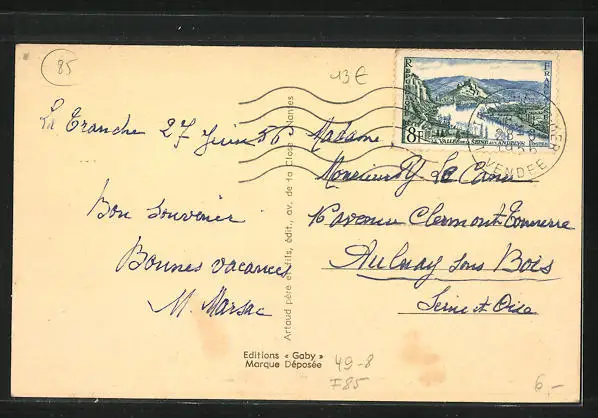 85
13 €
La Tranche 27 Juin 56
Bon Souvenir
Bonnes vacances
M. Marsac
Artaud père et fils, édit., av. de la Close, Nantes
Editions « Gaby »
Marque Déposée
49-8
F85
6,-
REPUBLIQUE
FRANCAISE
8F
VALLEE DE LA SEINE AUX ANDELYS
POSTES
1956
VENDEE
Madame
Monsieur Le
avenue Clermont Tonnerre
Aulnay sous Bois
Seine et Oise